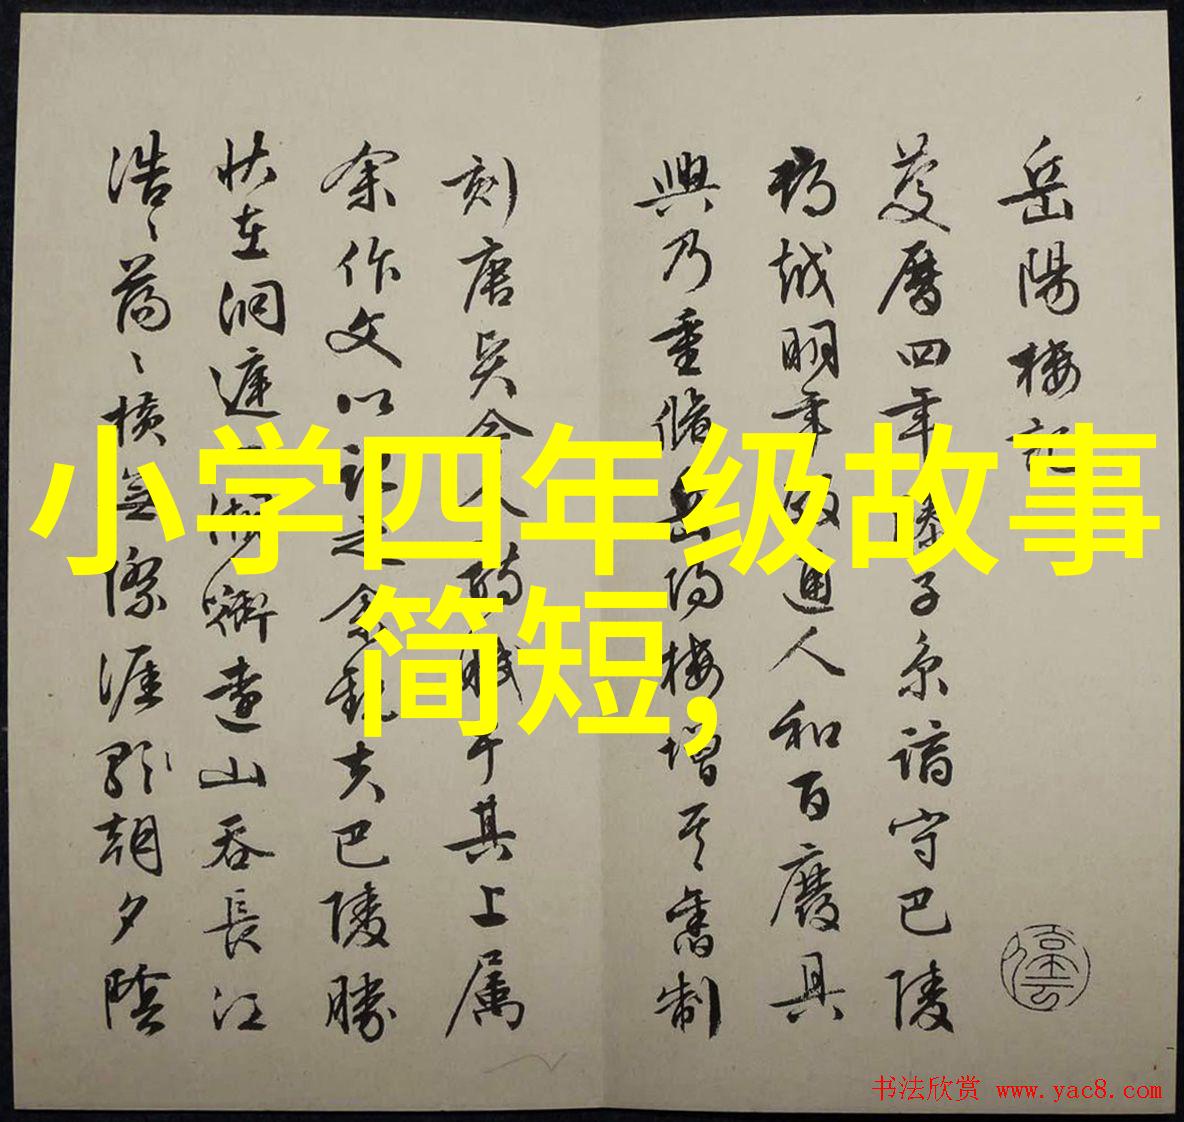 岳陽樓記
慶曆四年 滕子京謫守巴陵
越明年 通人和百廢具
興乃重脩岳陽樓增其舊制
刻唐 今人 其上属
余作文以記之 余觀夫巴陵勝
狀在洞庭 湖 銜遠山吞長江
浩〻蕩〻橫無際涯 朝夕陰
小学四年级故事
简短,
书法欣赏 www.yac8.com